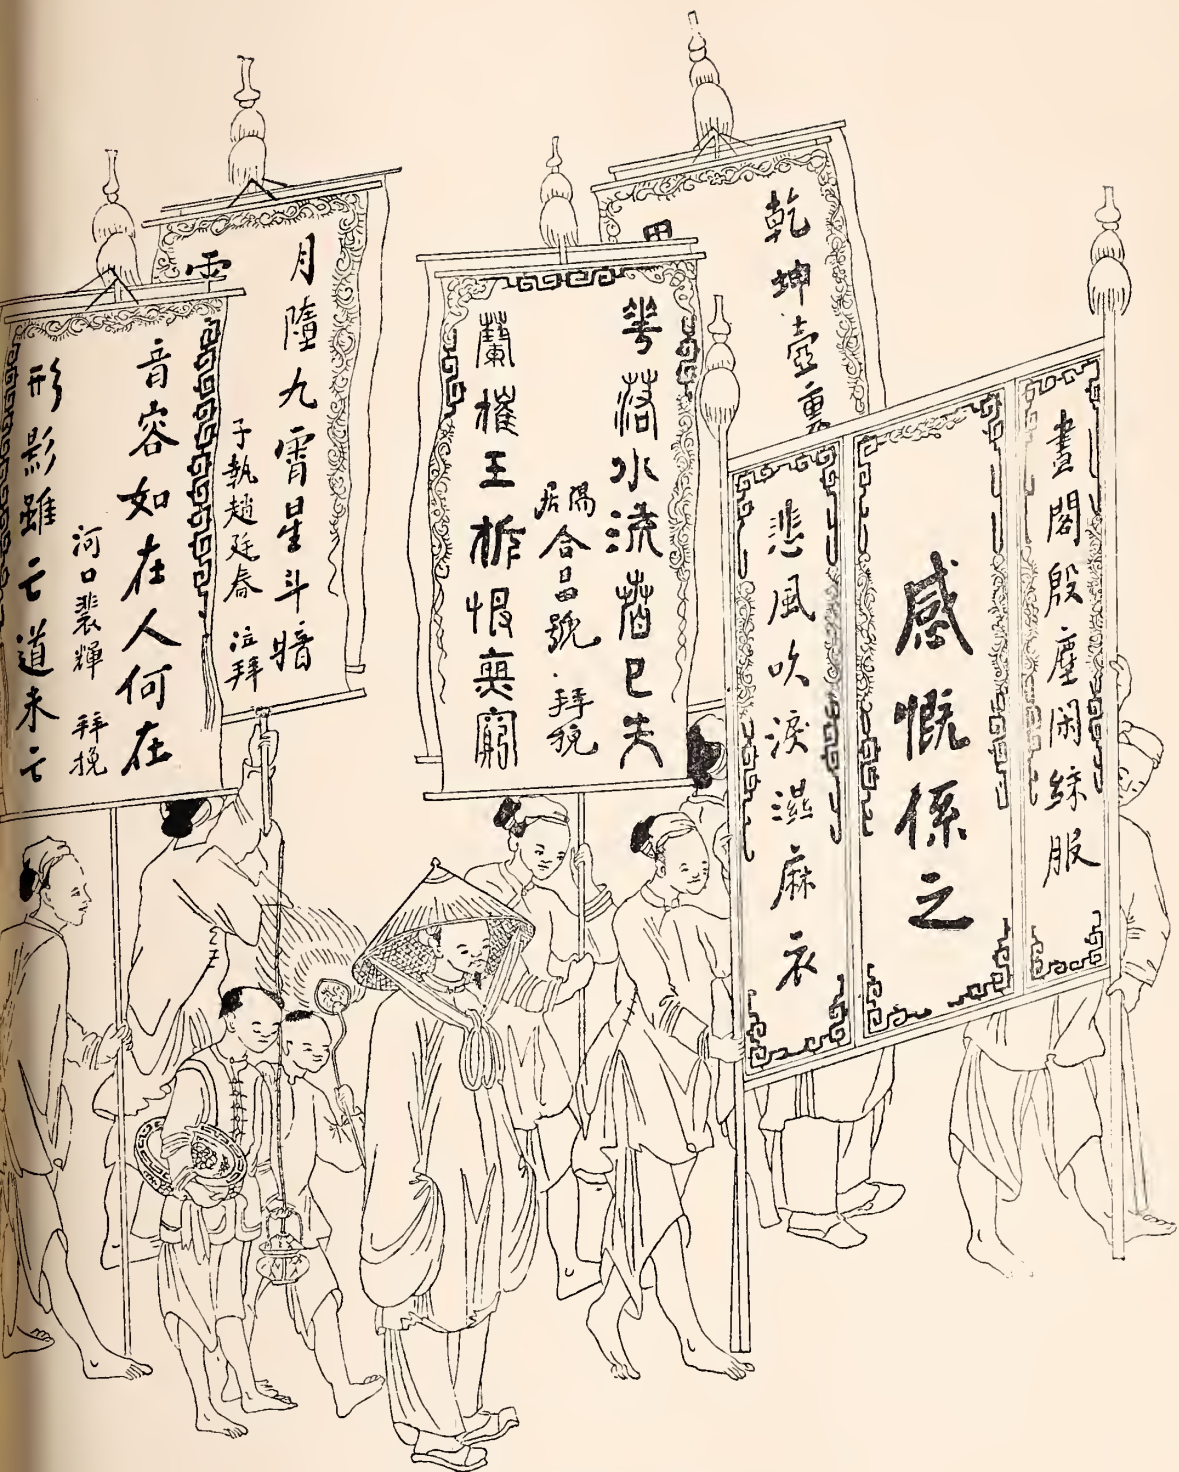 畫閣殷塵閑綵服
感慨係之
悲風吹淚濕麻衣
乾坤壺裏
落水流
合昌號 拜挽
蘭摧玉柝恨無窮
月墮九霄星斗暗
子執趙廷春 泣拜
雲
音容如在人何在
河口裴輝 拜挽
形影雖亡道未亡